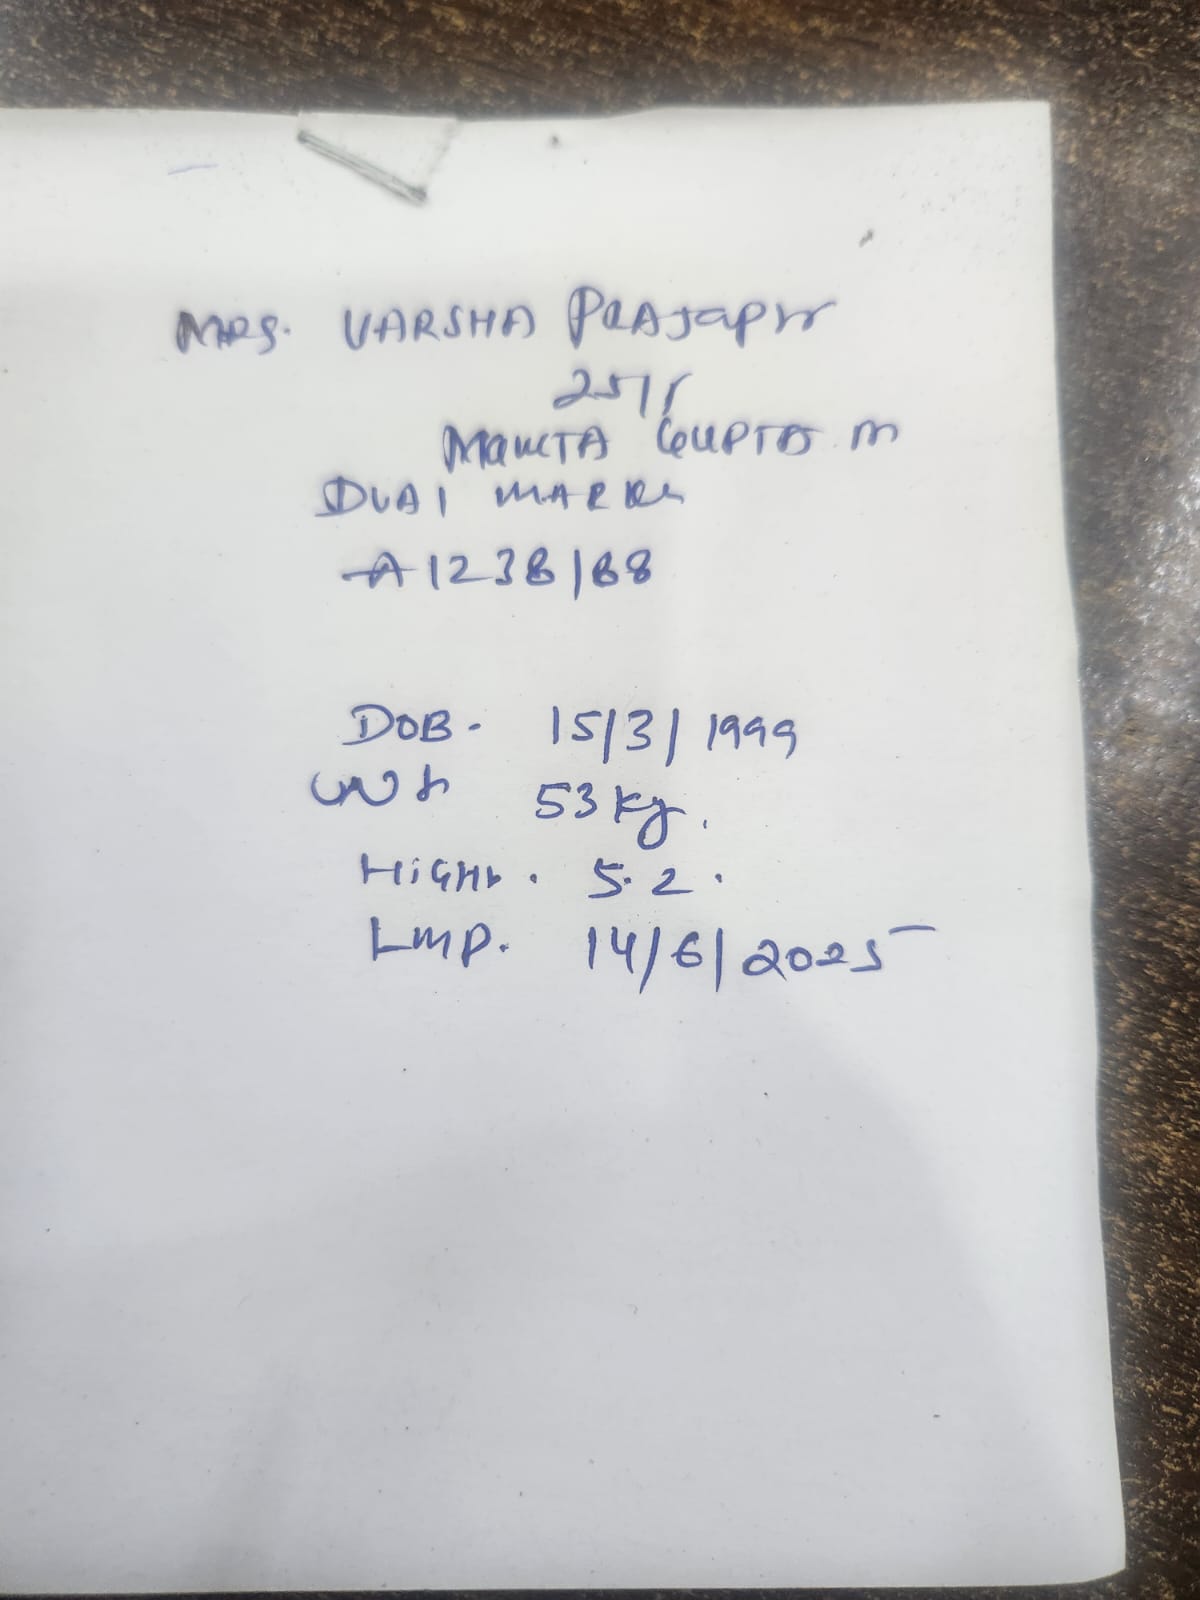 MRS. VARSHA PRAJapti
25/F
MAMTA GUPTA m
DUAl MARKR
A1238168
DOB- 15/3/1999
Wt 53 kg.
HiGHt. 5.2.
LMP. 14/6/2025